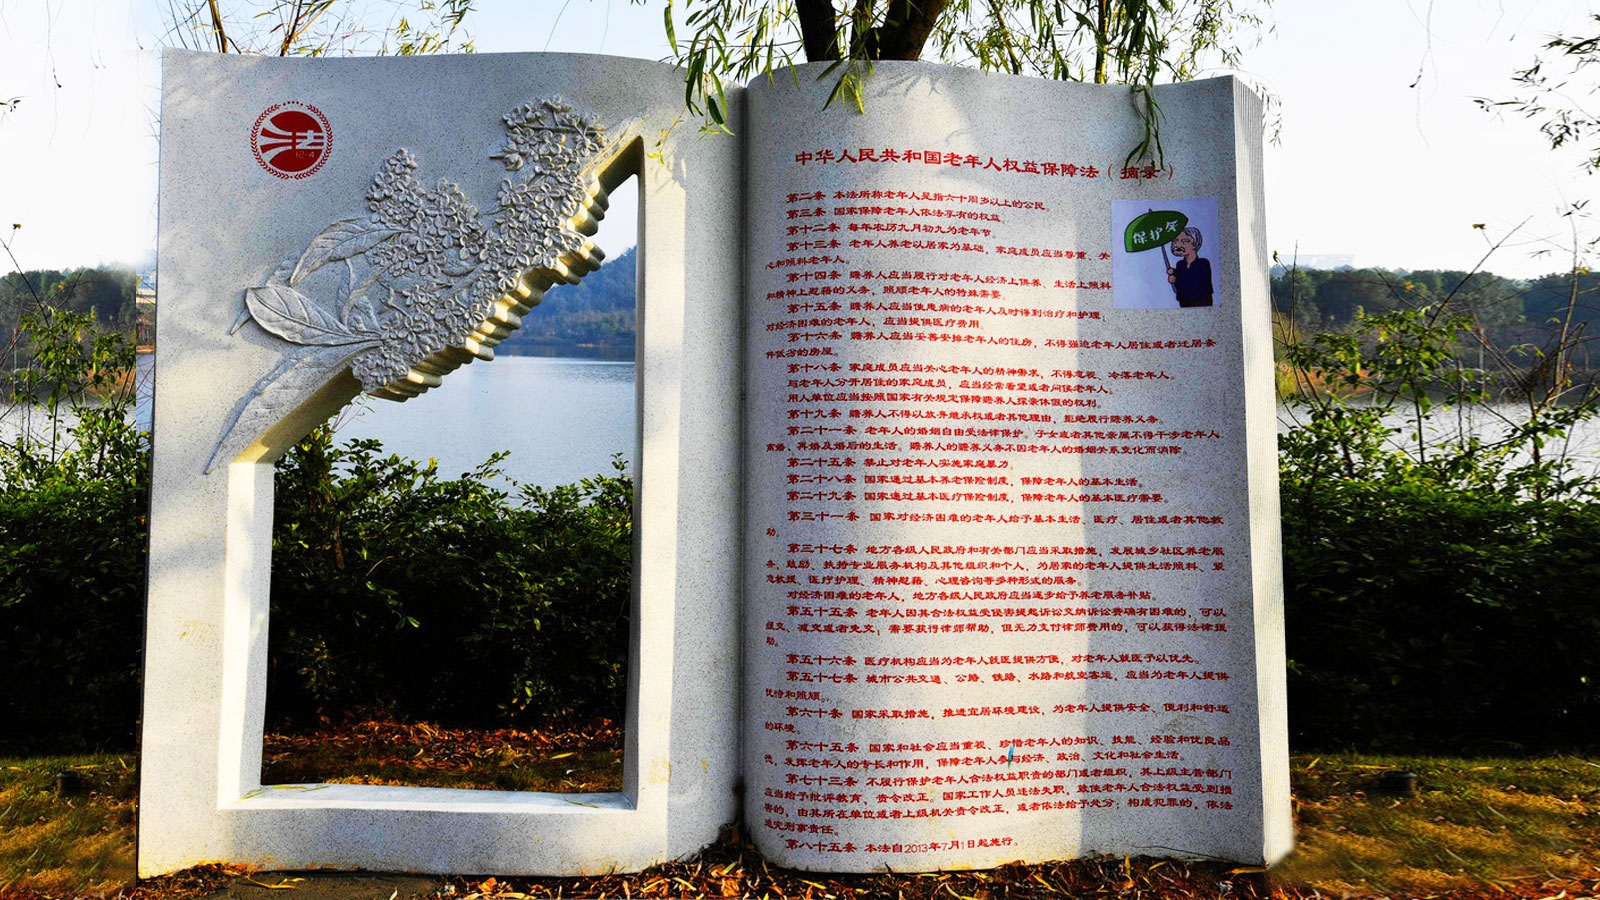 法
12·4
中华人民共和国老年人权益保障法（摘录）
第二条 本法所称老年人是指六十周岁以上的公民。
第三条 国家保障老年人依法享有的权益
第十二条 每年农历九月初九为老年节。
第十三条 老年人养老以居家为基础，家庭成员应当尊重、关
心和照料老年人。
保护伞
第十四条 赡养人应当履行对老年人经济上供养、生活上照料
和精神上慰藉的义务，照顾老年人的特殊需要。
第十五条 赡养人应当使患病的老年人及时得到治疗和护理；
对经济困难的老年人，应当提供医疗费用。
第十六条 赡养人应当妥善安排老年人的住房，不得强迫老年人居住或者迁居条
件低劣的房屋。
第十八条 家庭成员应当关心老年人的精神需求，不得忽视、冷落老年人。
与老年人分开居住的家庭成员，应当经常看望或者问候老年人。
用人单位应当按照国家有关规定保障赡养人探亲休假的权利。
第十九条 赡养人不得以放弃继承权或者其他理由，拒绝履行赡养义务。
第二十一条 老年人的婚姻自由受法律保护。子女或者其他亲属不得干涉老年人
离婚、再婚及婚后的生活。赡养人的赡养义务不因老年人的婚姻关系变化而消除。
第二十五条 禁止对老年人实施家庭暴力。
第二十八条 国家通过基本养老保险制度，保障老年人的基本生活。
第二十九条 国家通过基本医疗保险制度，保障老年人的基本医疗需要。
第三十一条 国家对经济困难的老年人给予基本生活、医疗、居住或者其他救
助。
第三十七条 地方各级人民政府和有关部门应当采取措施，发展城乡社区养老服
务，鼓励、扶持专业服务机构及其他组织和个人，为居家的老年人提供生活照料、紧
急救援、医疗护理、精神慰藉、心理咨询等多种形式的服务。
对经济困难的老年人，地方各级人民政府应当逐步给予养老服务补贴。
第五十五条 老年人因其合法权益受侵害提起诉讼交纳诉讼费确有困难的，可以
缓交、减交或者免交；需要获得律师帮助，但无力支付律师费用的，可以获得法律援
助。
第五十六条 医疗机构应当为老年人就医提供方便，对老年人就医予以优先。
第五十七条 城市公共交通、公路、铁路、水路和航空客运，应当为老年人提供
优待和照顾。
第六十条 国家采取措施，推进宜居环境建设，为老年人提供安全、便利和舒适
的环境。
第六十五条 国家和社会应当重视、珍惜老年人的知识、技能、经验和优良品
德，发挥老年人的专长和作用，保障老年人参与经济、政治、文化和社会生活。
第七十三条 不履行保护老年人合法权益职责的部门或者组织，其上级主管部门
应当给予批评教育，责令改正。国家工作人员违法失职，致使老年人合法权益受到损
害的，由其所在单位或者上级机关责令改正，或者依法给予处分；构成犯罪的，依法
追究刑事责任。
第八十五条 本法自2013年7月1日起施行。